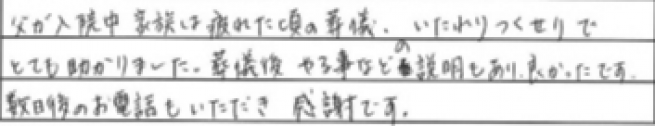 父が入院中 家族は疲れた頃の葬儀、いたれりつくせりで
とても助かりました。葬儀後 やる事などの説明もあり良かったです。
数日後のお電話もいただき 感謝です。